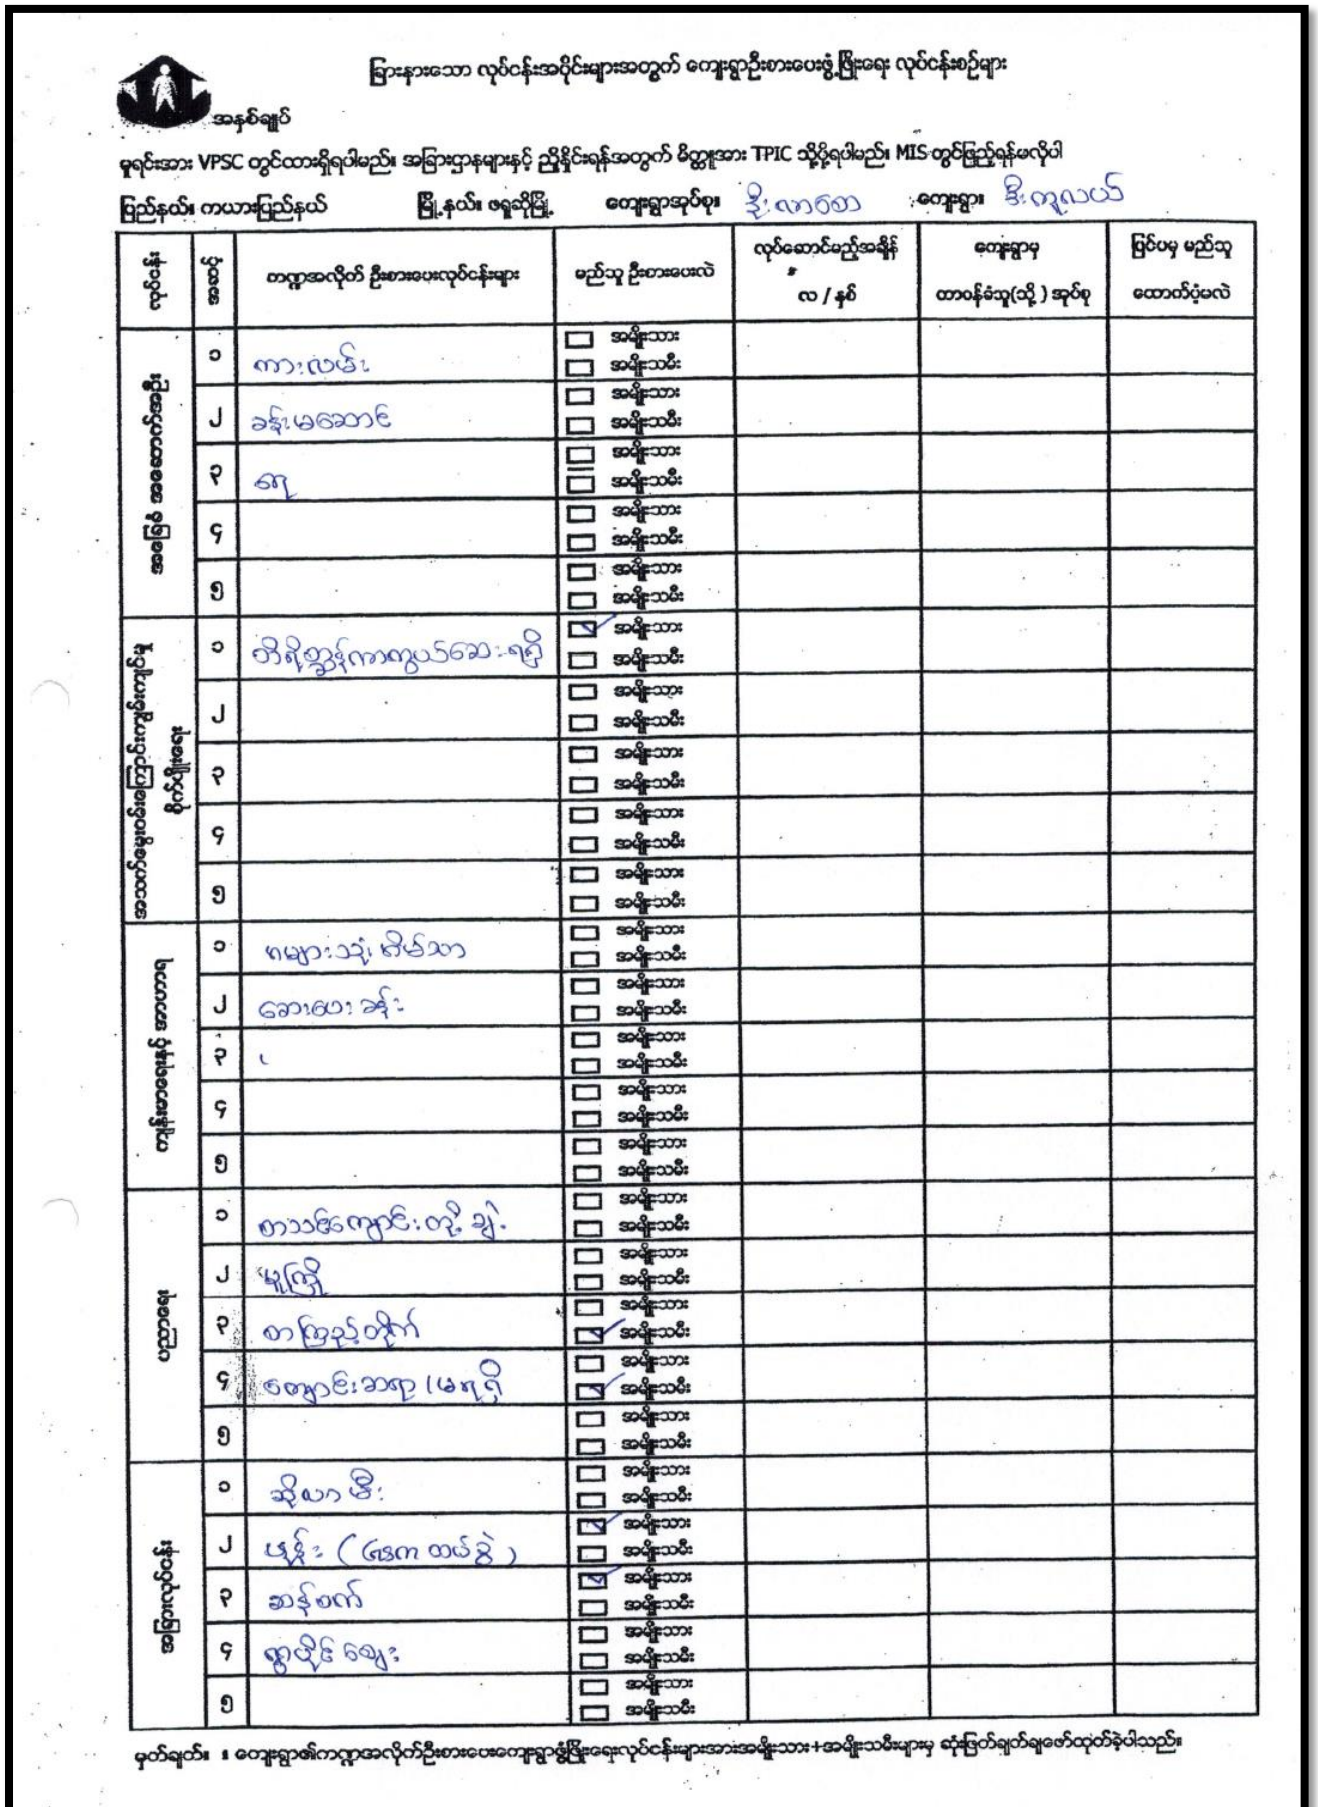 ခြားနားသော လုပ်ငန်းအပိုင်းများအတွက် ကျေးရွာဦးစားပေးဖွံ့ဖြိုးရေး လုပ်ငန်းစဉ်များ
အနှစ်ချုပ်
မူရင်းအား VPSC တွင်ထားရှိရပါမည်။ အခြားဌာနများနှင့် ညှိနှိုင်းရန်အတွက် မိတ္တူအား TPIC သို့ပို့ရပါမည်။ MIS တွင်ဖြည့်ရန်မလိုပါ
ပြည်နယ်။ ကယားပြည်နယ် မြို့နယ်။ ဖရူဆိုမြို့ ကျေးရွာအုပ်စု။ ဒိုးလာစော ကျေးရွာ။ ဒီးကူလယ်
လုပ်ငန်း အဆင့် ကဏ္ဍအလိုက် ဦးစားပေးလုပ်ငန်းများ မည်သူ ဦးစားပေးလဲ လုပ်ဆောင်မည့်အချိန် လ / နှစ် ကျေးရွာမှ တာဝန်ခံသူ(သို့) အုပ်စု ပြင်ပမှ မည်သူ ထောက်ပံ့မလဲ
အခြေခံ အဆောက်အဦး
၁ ကားလမ်း အမျိုးသား
အမျိုးသမီး
၂ ခန်းမဆောင် အမျိုးသား
အမျိုးသမီး
၃ ရေ အမျိုးသား
အမျိုးသမီး
၄ အမျိုးသား
အမျိုးသမီး
၅ အမျိုးသား
အမျိုးသမီး
အသက်မွေးဝမ်းကြောင်းလုပ်ငန်း
စိုက်ပျိုးရေး
၁ တိရိစ္ဆာန်ကာကွယ်ဆေးရရှိ အမျိုးသား
အမျိုးသမီး
၂ အမျိုးသား
အမျိုးသမီး
၃ အမျိုးသား
အမျိုးသမီး
၄ အမျိုးသား
အမျိုးသမီး
၅ အမျိုးသား
အမျိုးသမီး
ကျန်းမာရေးနှင့် အာဟာရ
၁ အများသုံးအိမ်သာ အမျိုးသား
အမျိုးသမီး
၂ ဆေးပေးခန်း အမျိုးသား
အမျိုးသမီး
၃ အမျိုးသား
အမျိုးသမီး
၄ အမျိုးသား
အမျိုးသမီး
၅ အမျိုးသား
အမျိုးသမီး
ပညာရေး
၁ စာသင်ကျောင်းတိုးချဲ့ အမျိုးသား
အမျိုးသမီး
၂ မူကြို အမျိုးသား
အမျိုးသမီး
၃ စာကြည့်တိုက် အမျိုးသား
အမျိုးသမီး
၄ ကျောင်းဆရာ/မရရှိ အမျိုးသား
အမျိုးသမီး
၅ အမျိုးသား
အမျိုးသမီး
အခြားလုပ်ငန်း
၁ ဆိုလာမီး အမျိုးသား
အမျိုးသမီး
၂ ဖုန်း အမျိုးသား
အမျိုးသမီး
၃ ဆန်စက် အမျိုးသား
အမျိုးသမီး
၄ ရွာပိုင်ဈေး အမျိုးသား
အမျိုးသမီး
၅ အမျိုးသား
အမျိုးသမီး
မှတ်ချက်။ ။ ကျေးရွာ၏ကဏ္ဍအလိုက်ဦးစားပေးကျေးရွာဖွံ့ဖြိုးရေးလုပ်ငန်းများအားအမျိုးသား+အမျိုးသမီးများမှ ဆုံးဖြတ်ချက်ချဖော်ထုတ်ခဲ့ပါသည်။